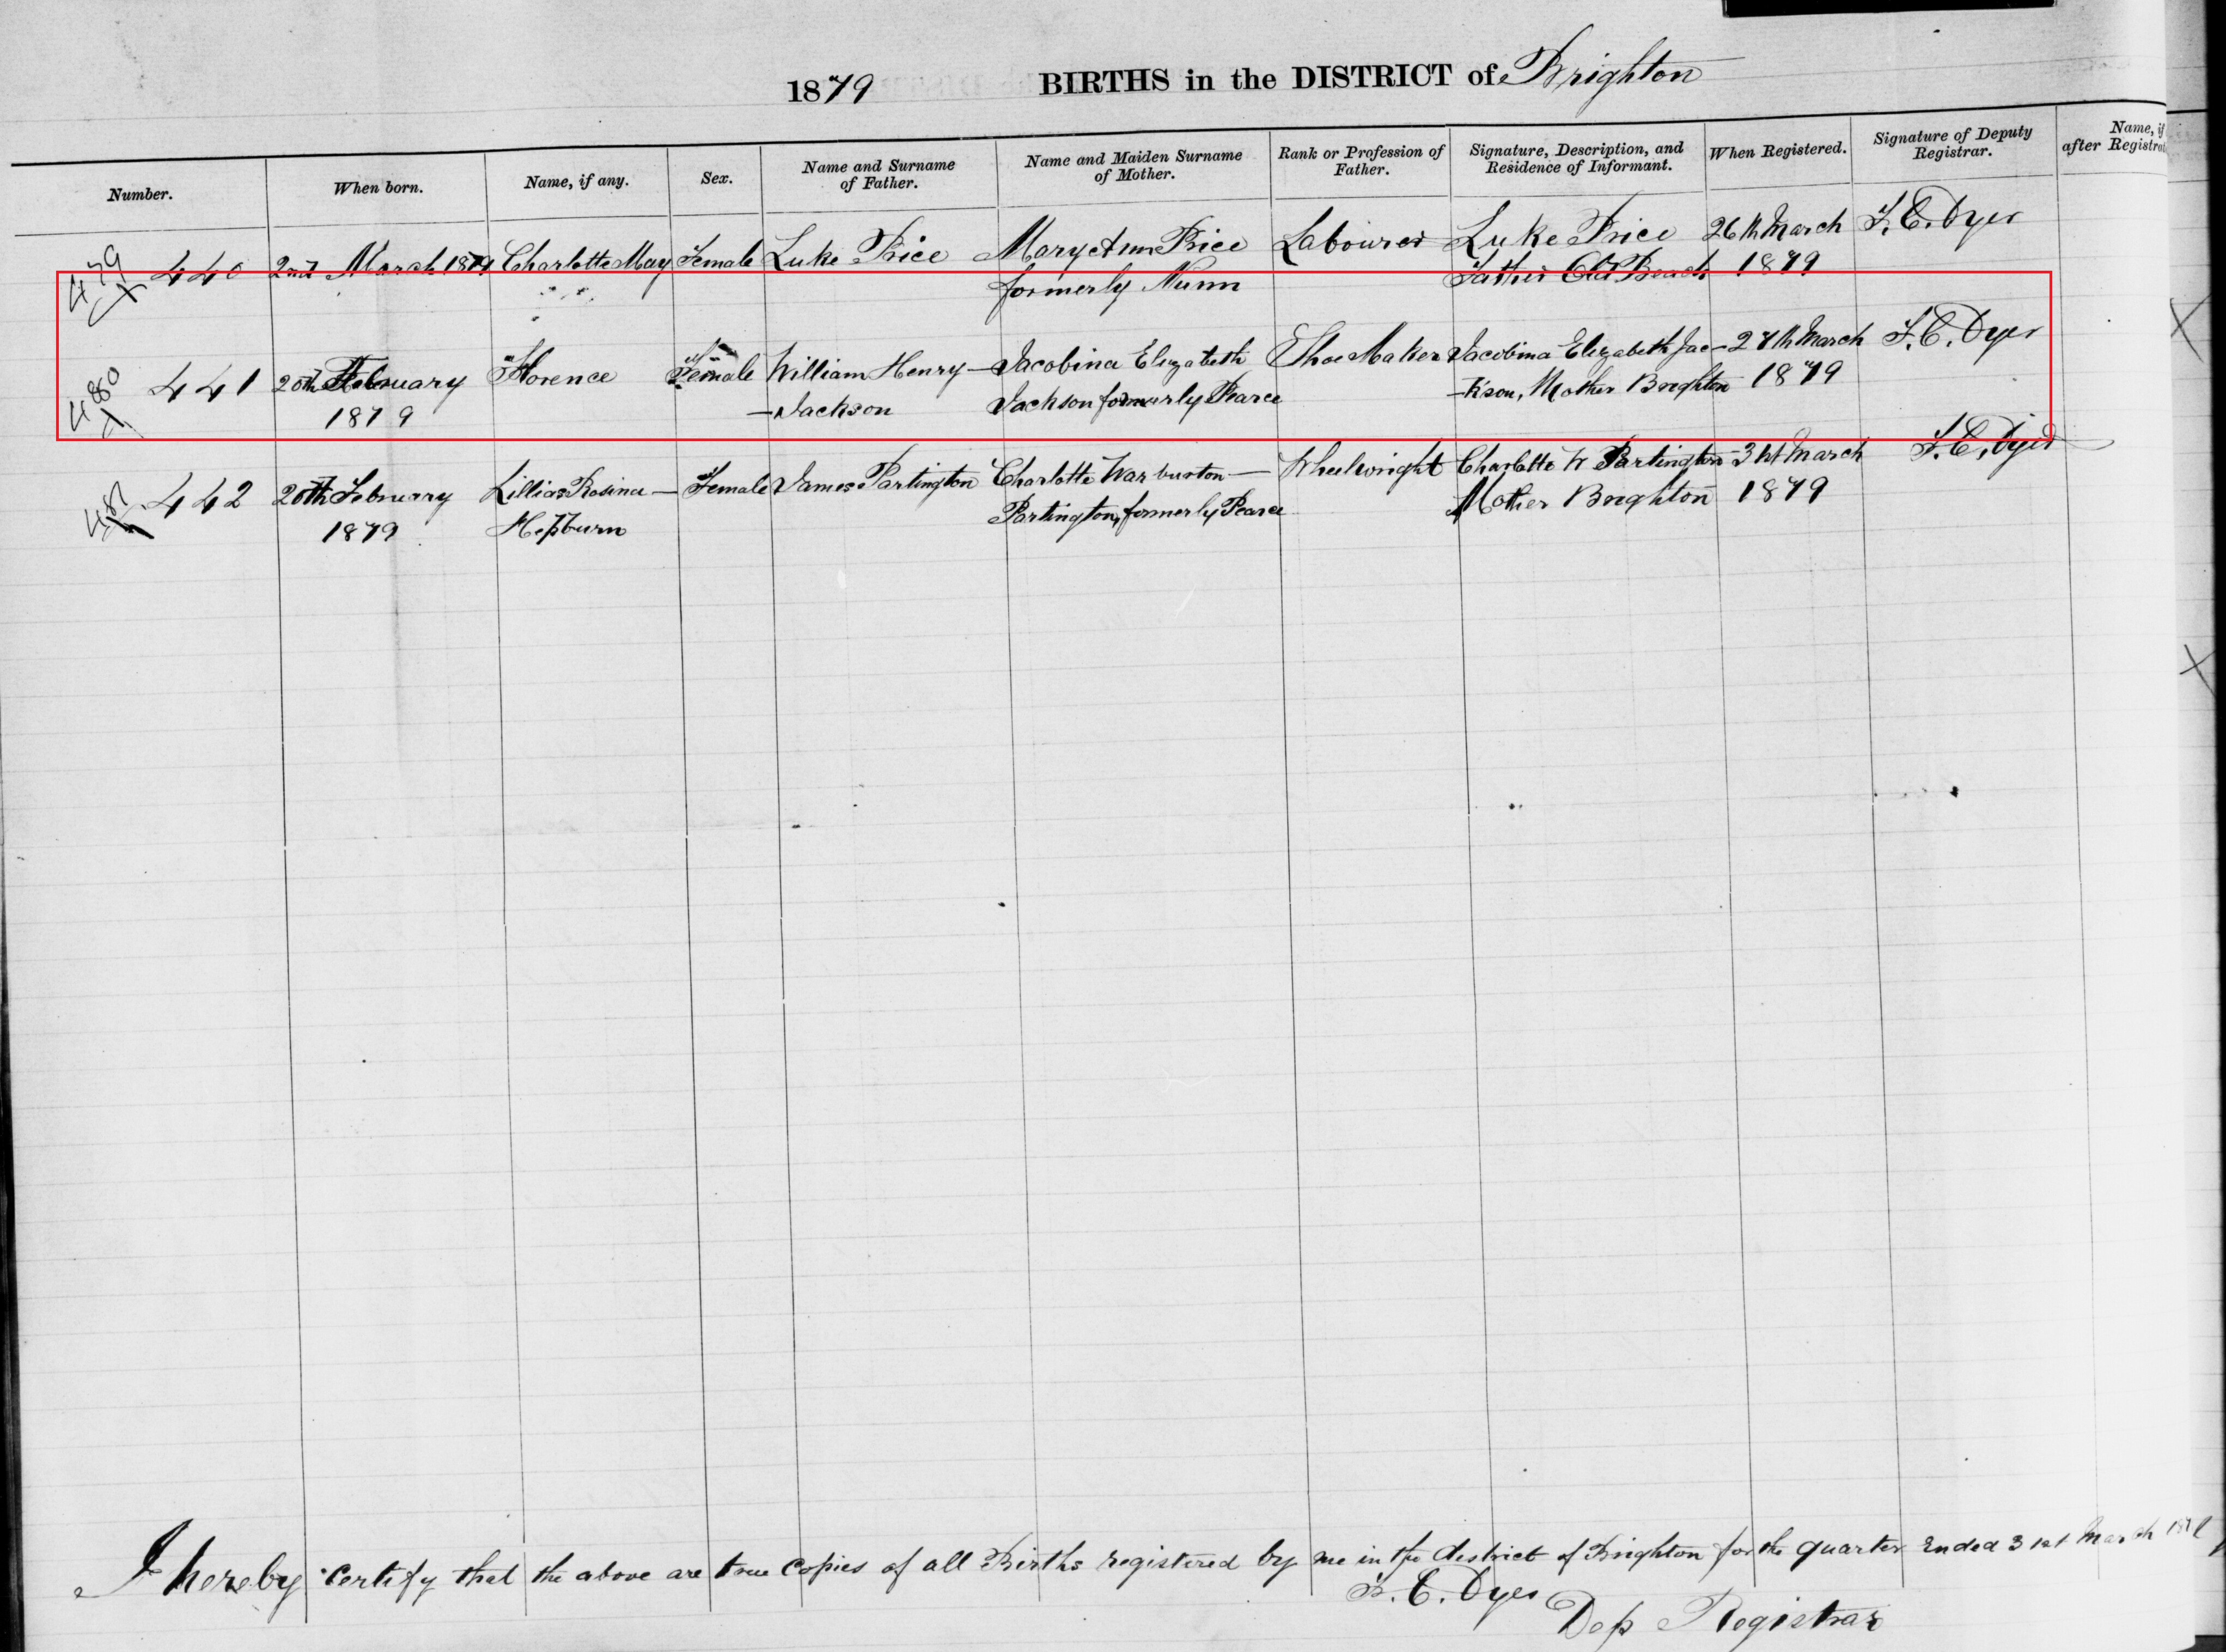 1879 BIRTHS in the DISTRICT of Brighton
Number. When born. Name, if any. Sex. Name and Surname of Father. Name and Maiden Surname of Mother. Rank or Profession of Father. Signature, Description, and Residence of Informant. When Registered. Signature of Deputy Registrar. Name, if after
479 440 2nd March 1879 Charlotte May Female Luke Price Mary Ann Price Labourer Luke Price 26th March F. C. Dyer
formerly Nunn Father Old Beach 1879
480 441 20th February Florence Female William Henry- Jacobina Elizabeth Shoe Maker Jacobina Elizabeth Jac- 27th March F. C. Dyer
1879 -Jackson Jackson formerly Pearce -kson, Mother Brighton 1879
481 442 20th February Lillias Rosina- Female James Partington Charlotte Warburton- Wheelwright Charlotte W Partington 31st March F. C. Dyer
1879 Hepburn Partington, formerly Pearce Mother Brighton 1879
I hereby certify that the above are true copies of all Births registered by me in the district of Brighton for the quarter ended 31st March
F. C. Dyer
Dep Registrar